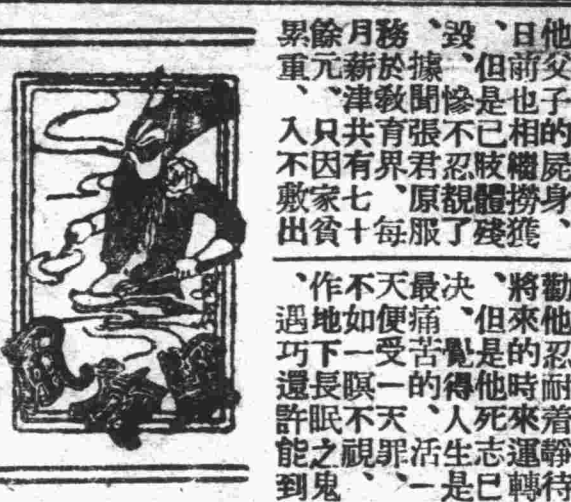 他父子的屍身、
日前也相繼撈獲
、但是已肢體殘
毀、慘不忍覩了
、據聞張君原服
務於敎育界、每
月薪津共有七十
餘元、只因家貧
累重、入不敷出
勸他忍耐着靜待
將來的時來運轉
、但是他死志已
决、覺得人生是
最痛苦的、活一
天便受一天罪、
不如一瞑不視、
作地下長眠之鬼
、遇巧還許能到